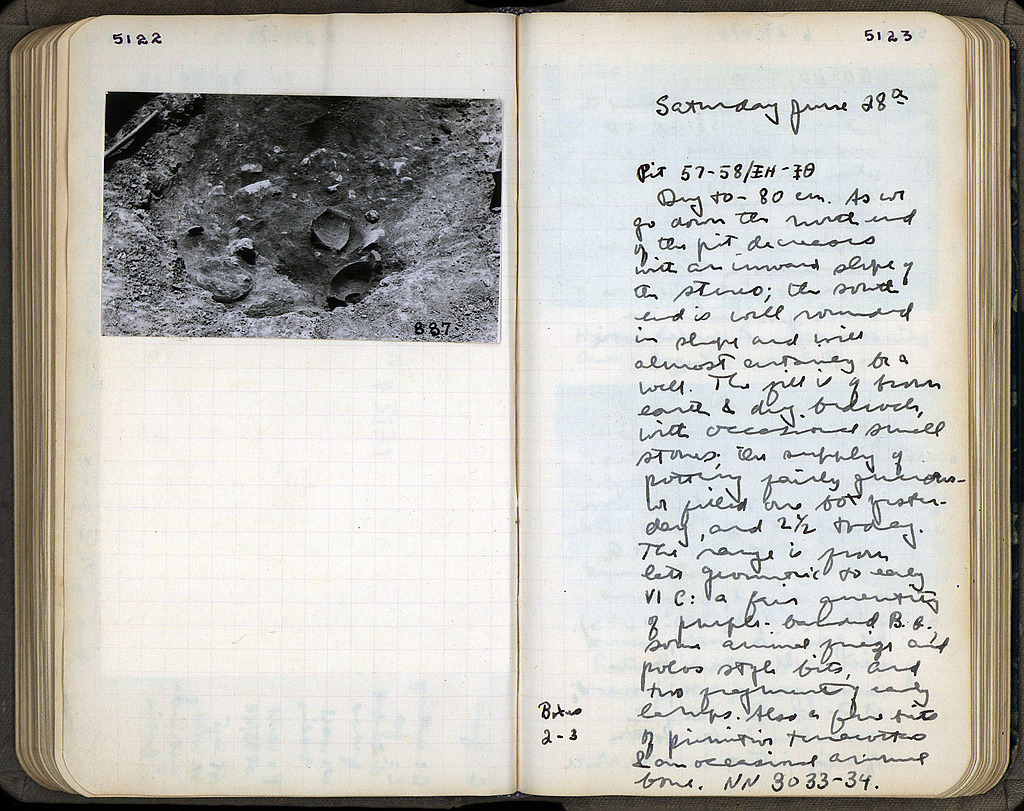 5122
887
5123
Saturday June 28
Pit 57-58/ΞΗ-ΞΘ
Dug to - 80 cm. As we
go down the north end
of the pit decreases
with an inward slope of
the stereo; the south
end is well rounded
in shape and will
almost certainly be a
well. The fill is of brown
earth & dug bedrock,
with occasional small
stones; the supply of
pottery fairly generous-
we filled one box yester-
day, and 2½ today.
The range is from
late geometric to early
VI C: a fair quantity
of purple-banded B.G.,
some animal frieze and
polos style bits, and
two fragments of early
lamps. Also a few bits
of primitive terracottas
& an occasional animal
bone. NN 3033-34.
Boxes
2-3